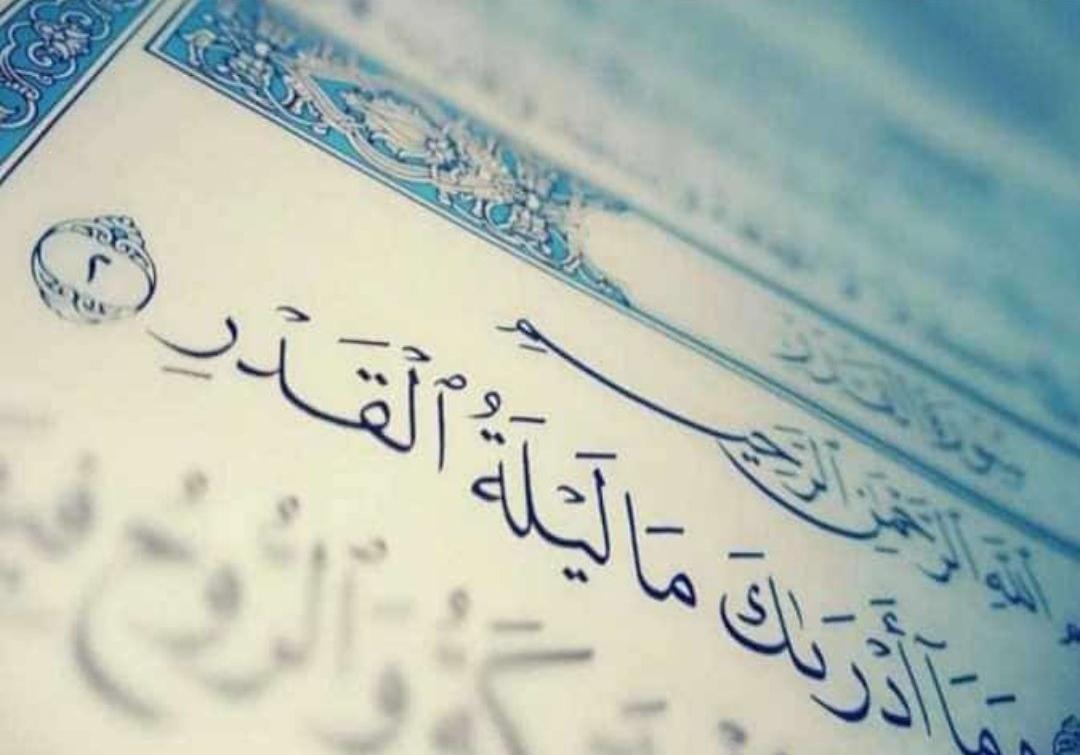 سورة القدر
الله الرحمن الرحيم
وَمَآ أَدْرَىٰكَ مَا لَيْلَةُ ٱلْقَدْرِ ٢
وَٱلرُّوحُ